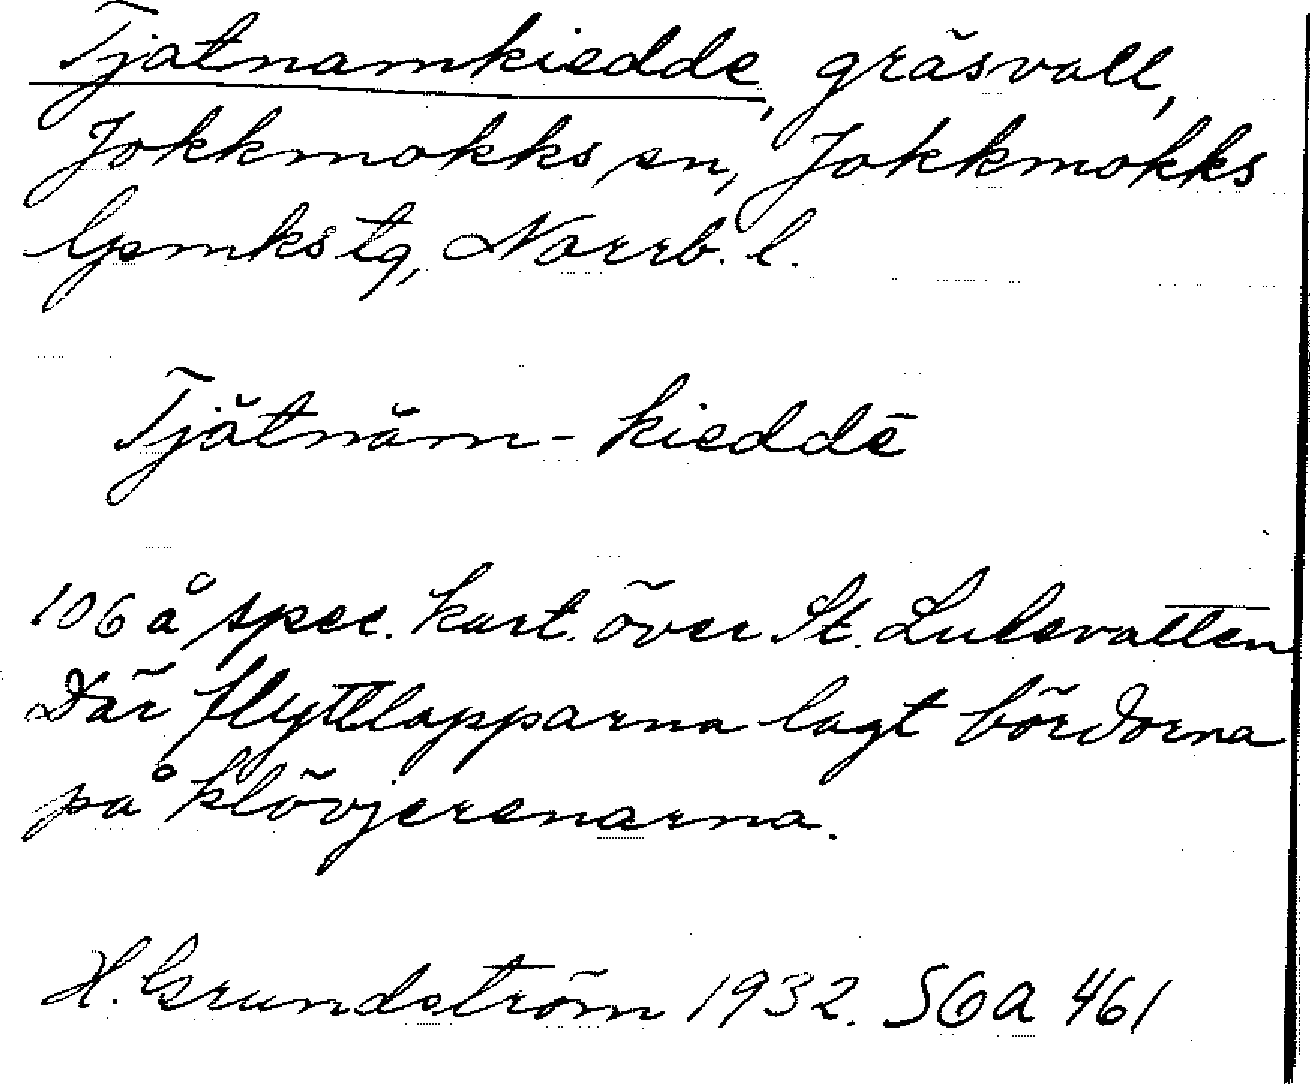 Tjatnamkiedde, gräsvall,
Jokkmokks sn, Jokkmokks
lpmks tg, Norrb. l.
Tjătnăm-kieddē
106 å spec. kart. över St. Lulevatten
Där flyttlapparna lagt bördorna
på klövjerenarna.
H. Grundström 1932. SGA 461